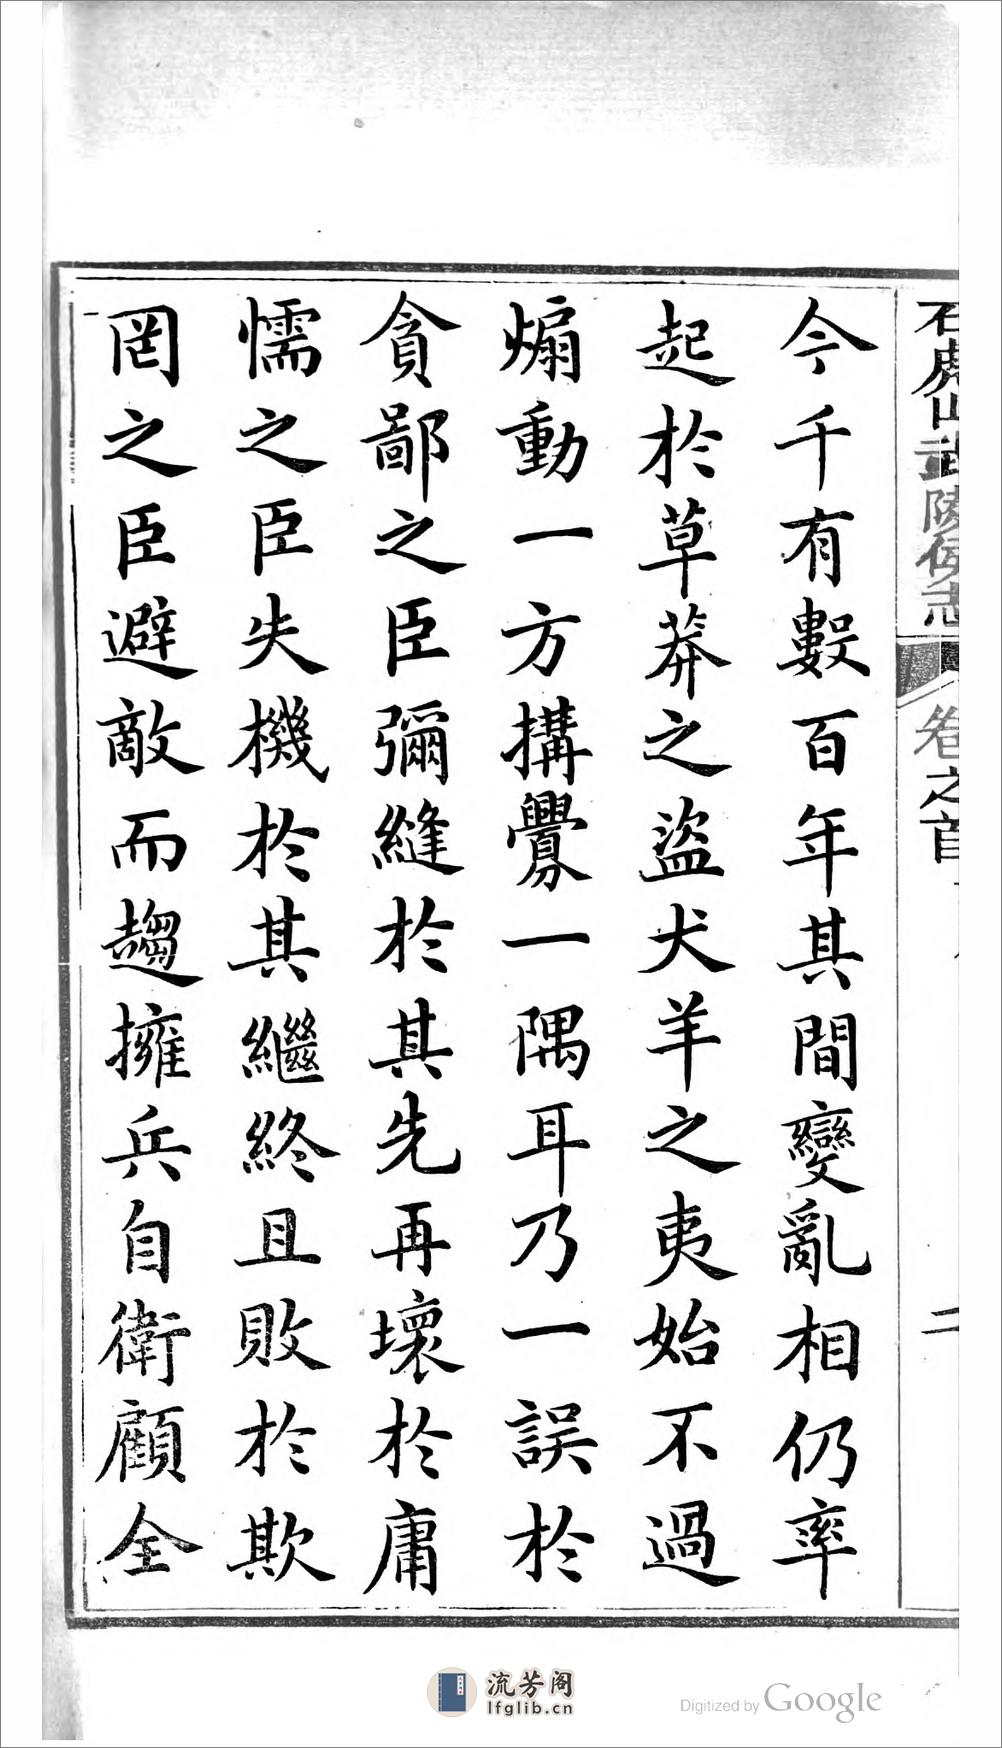 石虎山武陵侯志
卷之首
二
今千有數百年其間變亂相仍率
起於草莽之盜犬羊之夷始不過
煽動一方搆釁一隅耳乃一誤於
貪鄙之臣彌縫於其先再壞於庸
懦之臣失機於其繼終且敗於欺
罔之臣避敵而趨擁兵自衛顧全
流芳阁
lfglib.cn
Digitized by Google